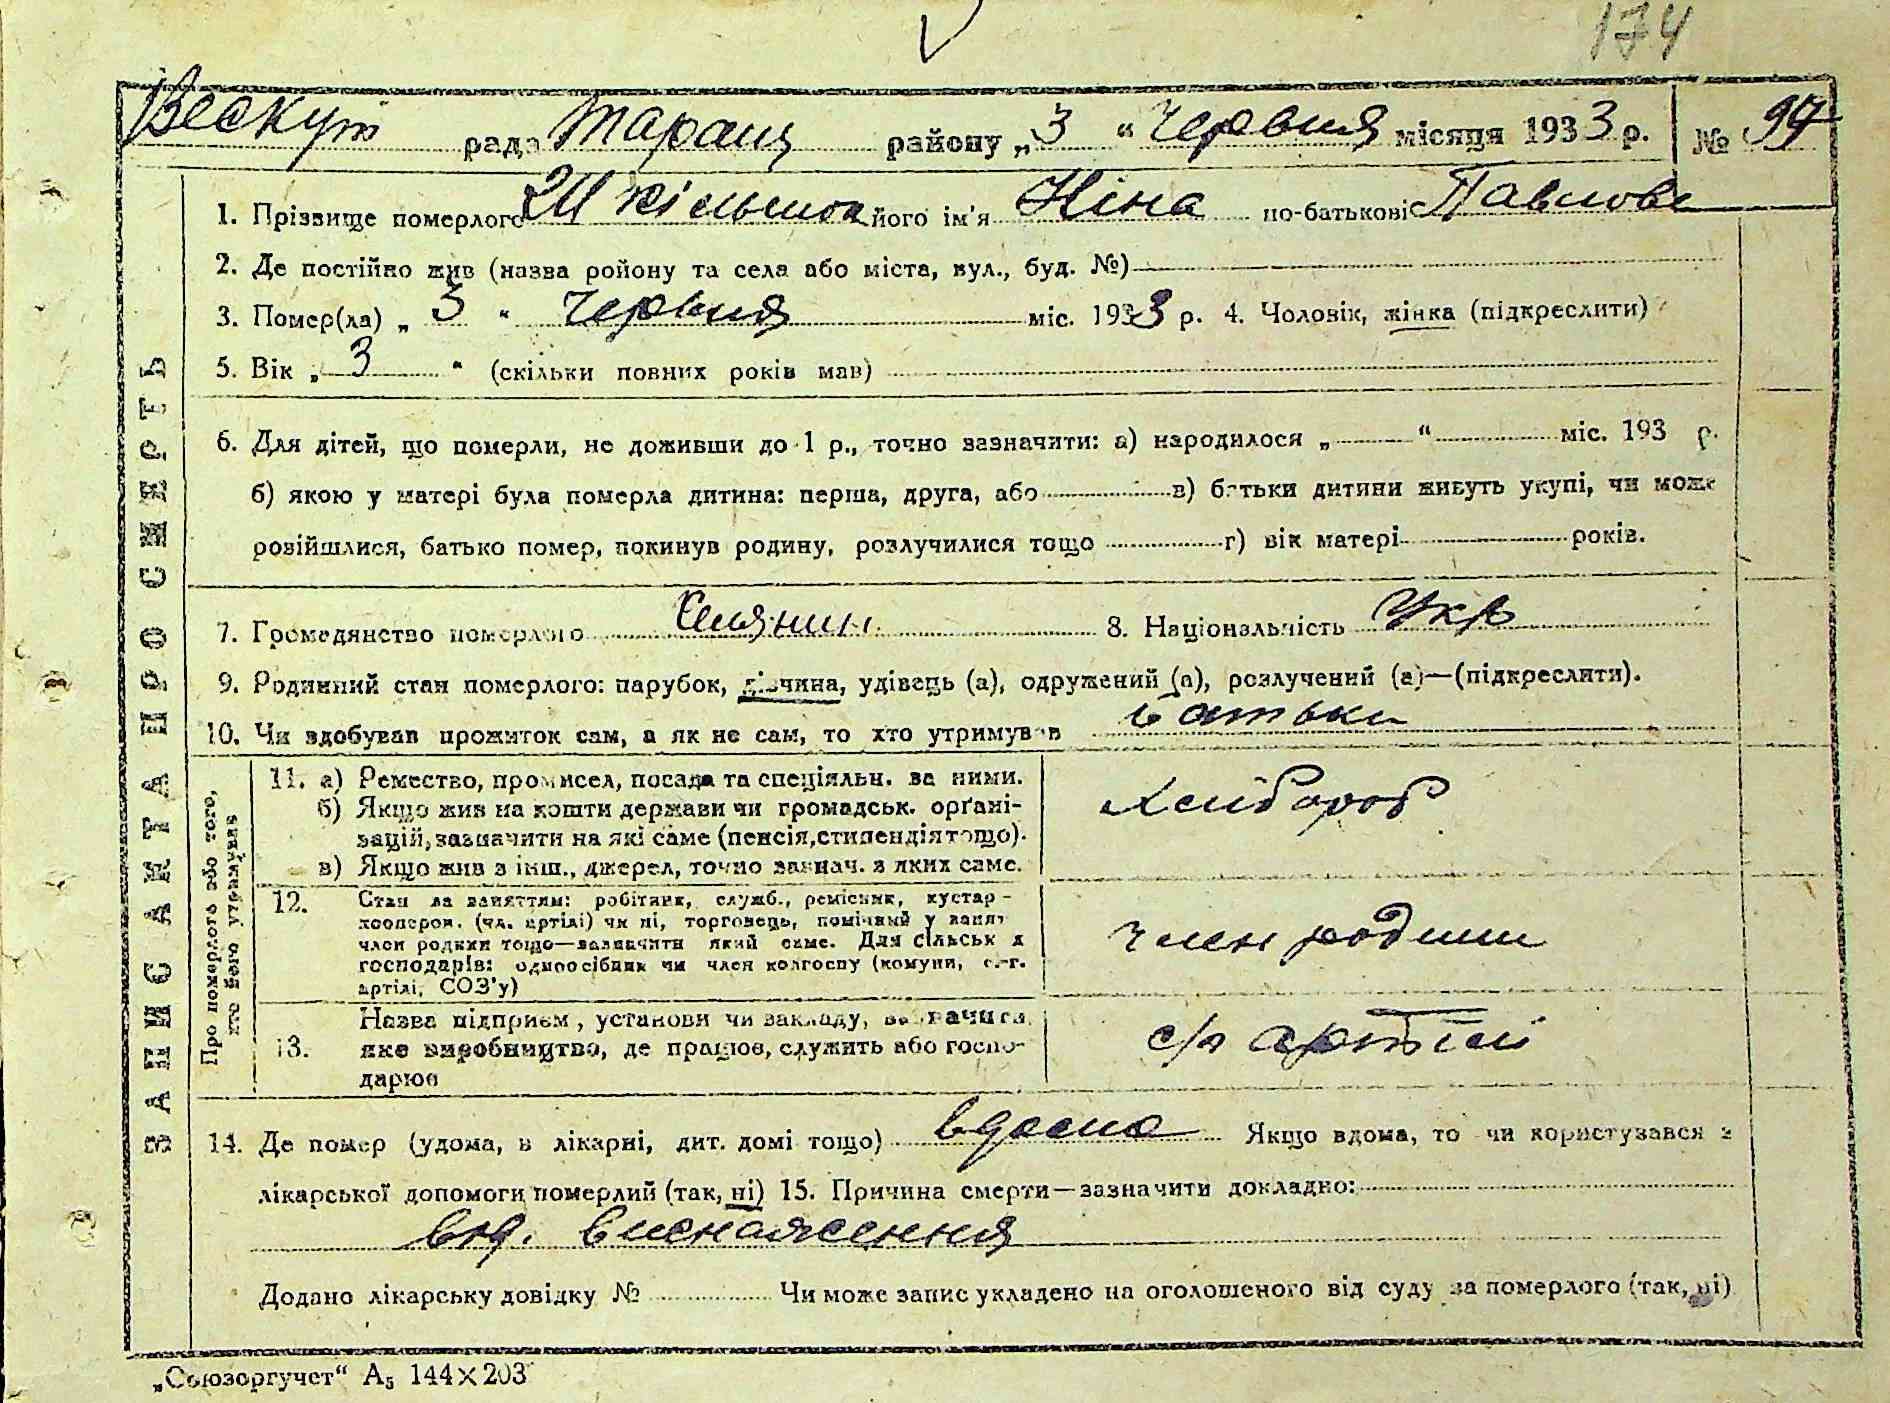 174
Вескут рада Таращ району „3 “ Червня місяця 1933 р. № 97
1. Прізвище померлого Шкільнюк його ім'я Ніна по-батькові Павлов
2. Де постійно жив (назва ройону та села або міста, вул., буд. №)
3. Помер(ла) „ 3 “ Червня міс. 1933 р. 4. Чоловік, жінка (підкреслити)
5. Вік „ 3 “ (скільки повних років мав)
6. Для дітей, що померли, не доживши до 1 р., точно зазначити: а) народилося „ “ міс. 193 р.
б) якою у матері була померла дитина: перша, друга, або в) батьки дитини живуть укупі, чи може
розійшлися, батько помер, покинув родину, розлучилися тощо г) вік матері років.
7. Громадянство померлого Селянин 8. Національність Укр
9. Родинний стан померлого: парубок, дівчина, удівець (а), одружений (а), розлучений (а)—(підкреслити).
10. Чи здобував прожиток сам, а як не сам, то хто утримував батьки
ЗАПИС АКТА ПРО СМЕРТЬ
Про померлого або того, хто його утримував
11. а) Ремество, промисел, посада та спеціяльн. за ними.
б) Якщо жив на кошти держави чи громадськ. орґані-
зацій, зазначити на які саме (пенсія, стипендія тощо).
в) Якщо жив з інш., джерел, точно зазнач. з яких саме.
Хлібороб
12. Стан за заняттям: робітник, служб., ремісник, кустар-
кооперов. (чл. артілі) чи ні, торговець, помічний у занят
член родини тощо—зазначити який саме. Для сільськ
господарів: одноосібник чи член колгоспу (комуни, с.-г.
артілі, СОЗ'у)
член родини
13. Назва підприєм, установи чи закладу, зазначити
яке виробництво, де працює, служить або госпо-
дарює
с/г артіл
14. Де помер (удома, в лікарні, дит. домі тощо) вдома Якщо вдома, то чи користувався з
лікарської допомоги померлий (так, ні) 15. Причина смерти—зазначити докладно:
від. виснаження
Додано лікарську довідку № Чи може запис укладено на оголошеного від суду за померлого (так, ні)
„Союзоргучет“ А5 144×203